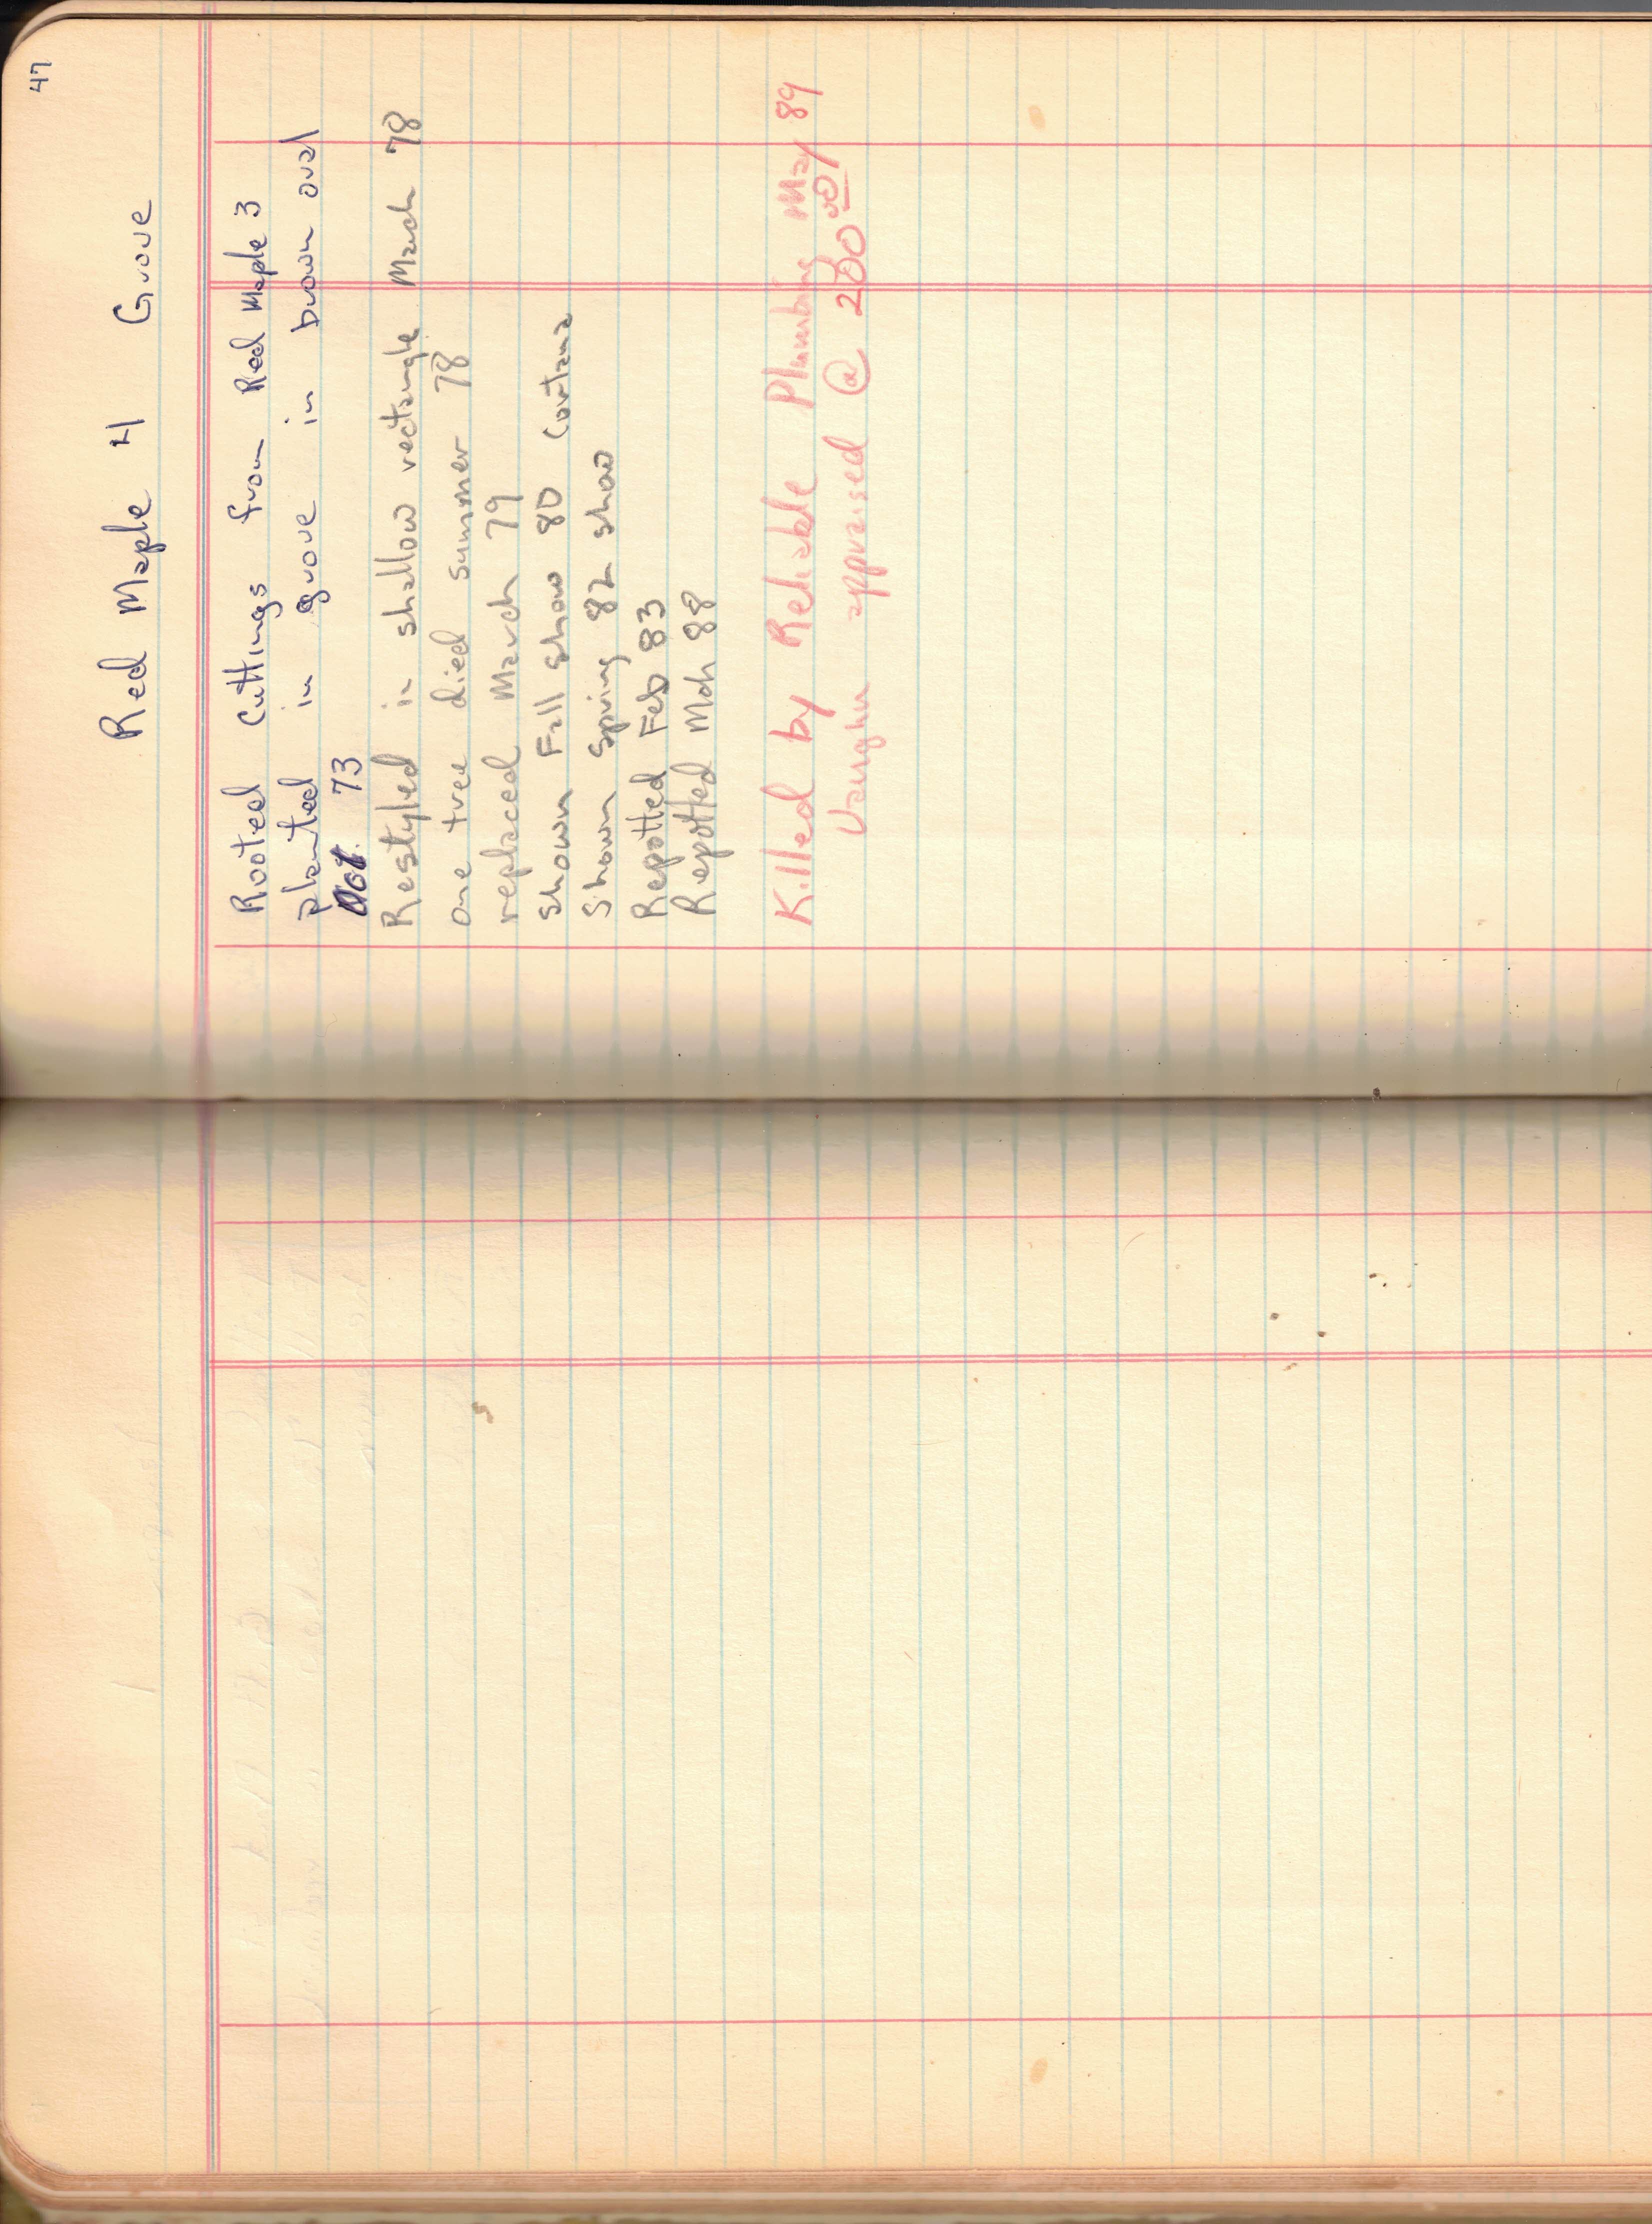 47
Red Maple 4 Grove
Rooted Cuttings from Red Maple 3
planted in grove in brown oval
Oct. 73
Restyled in shallow rectangle March 78
one tree died summer 78
replaced March 79
Shown Fall show 80
Shown Spring 82 show
Repotted Feb 83
Repotted Mch 88
Killed by Reliable Plumbing May 89
Vaughn appraised @ 200 00